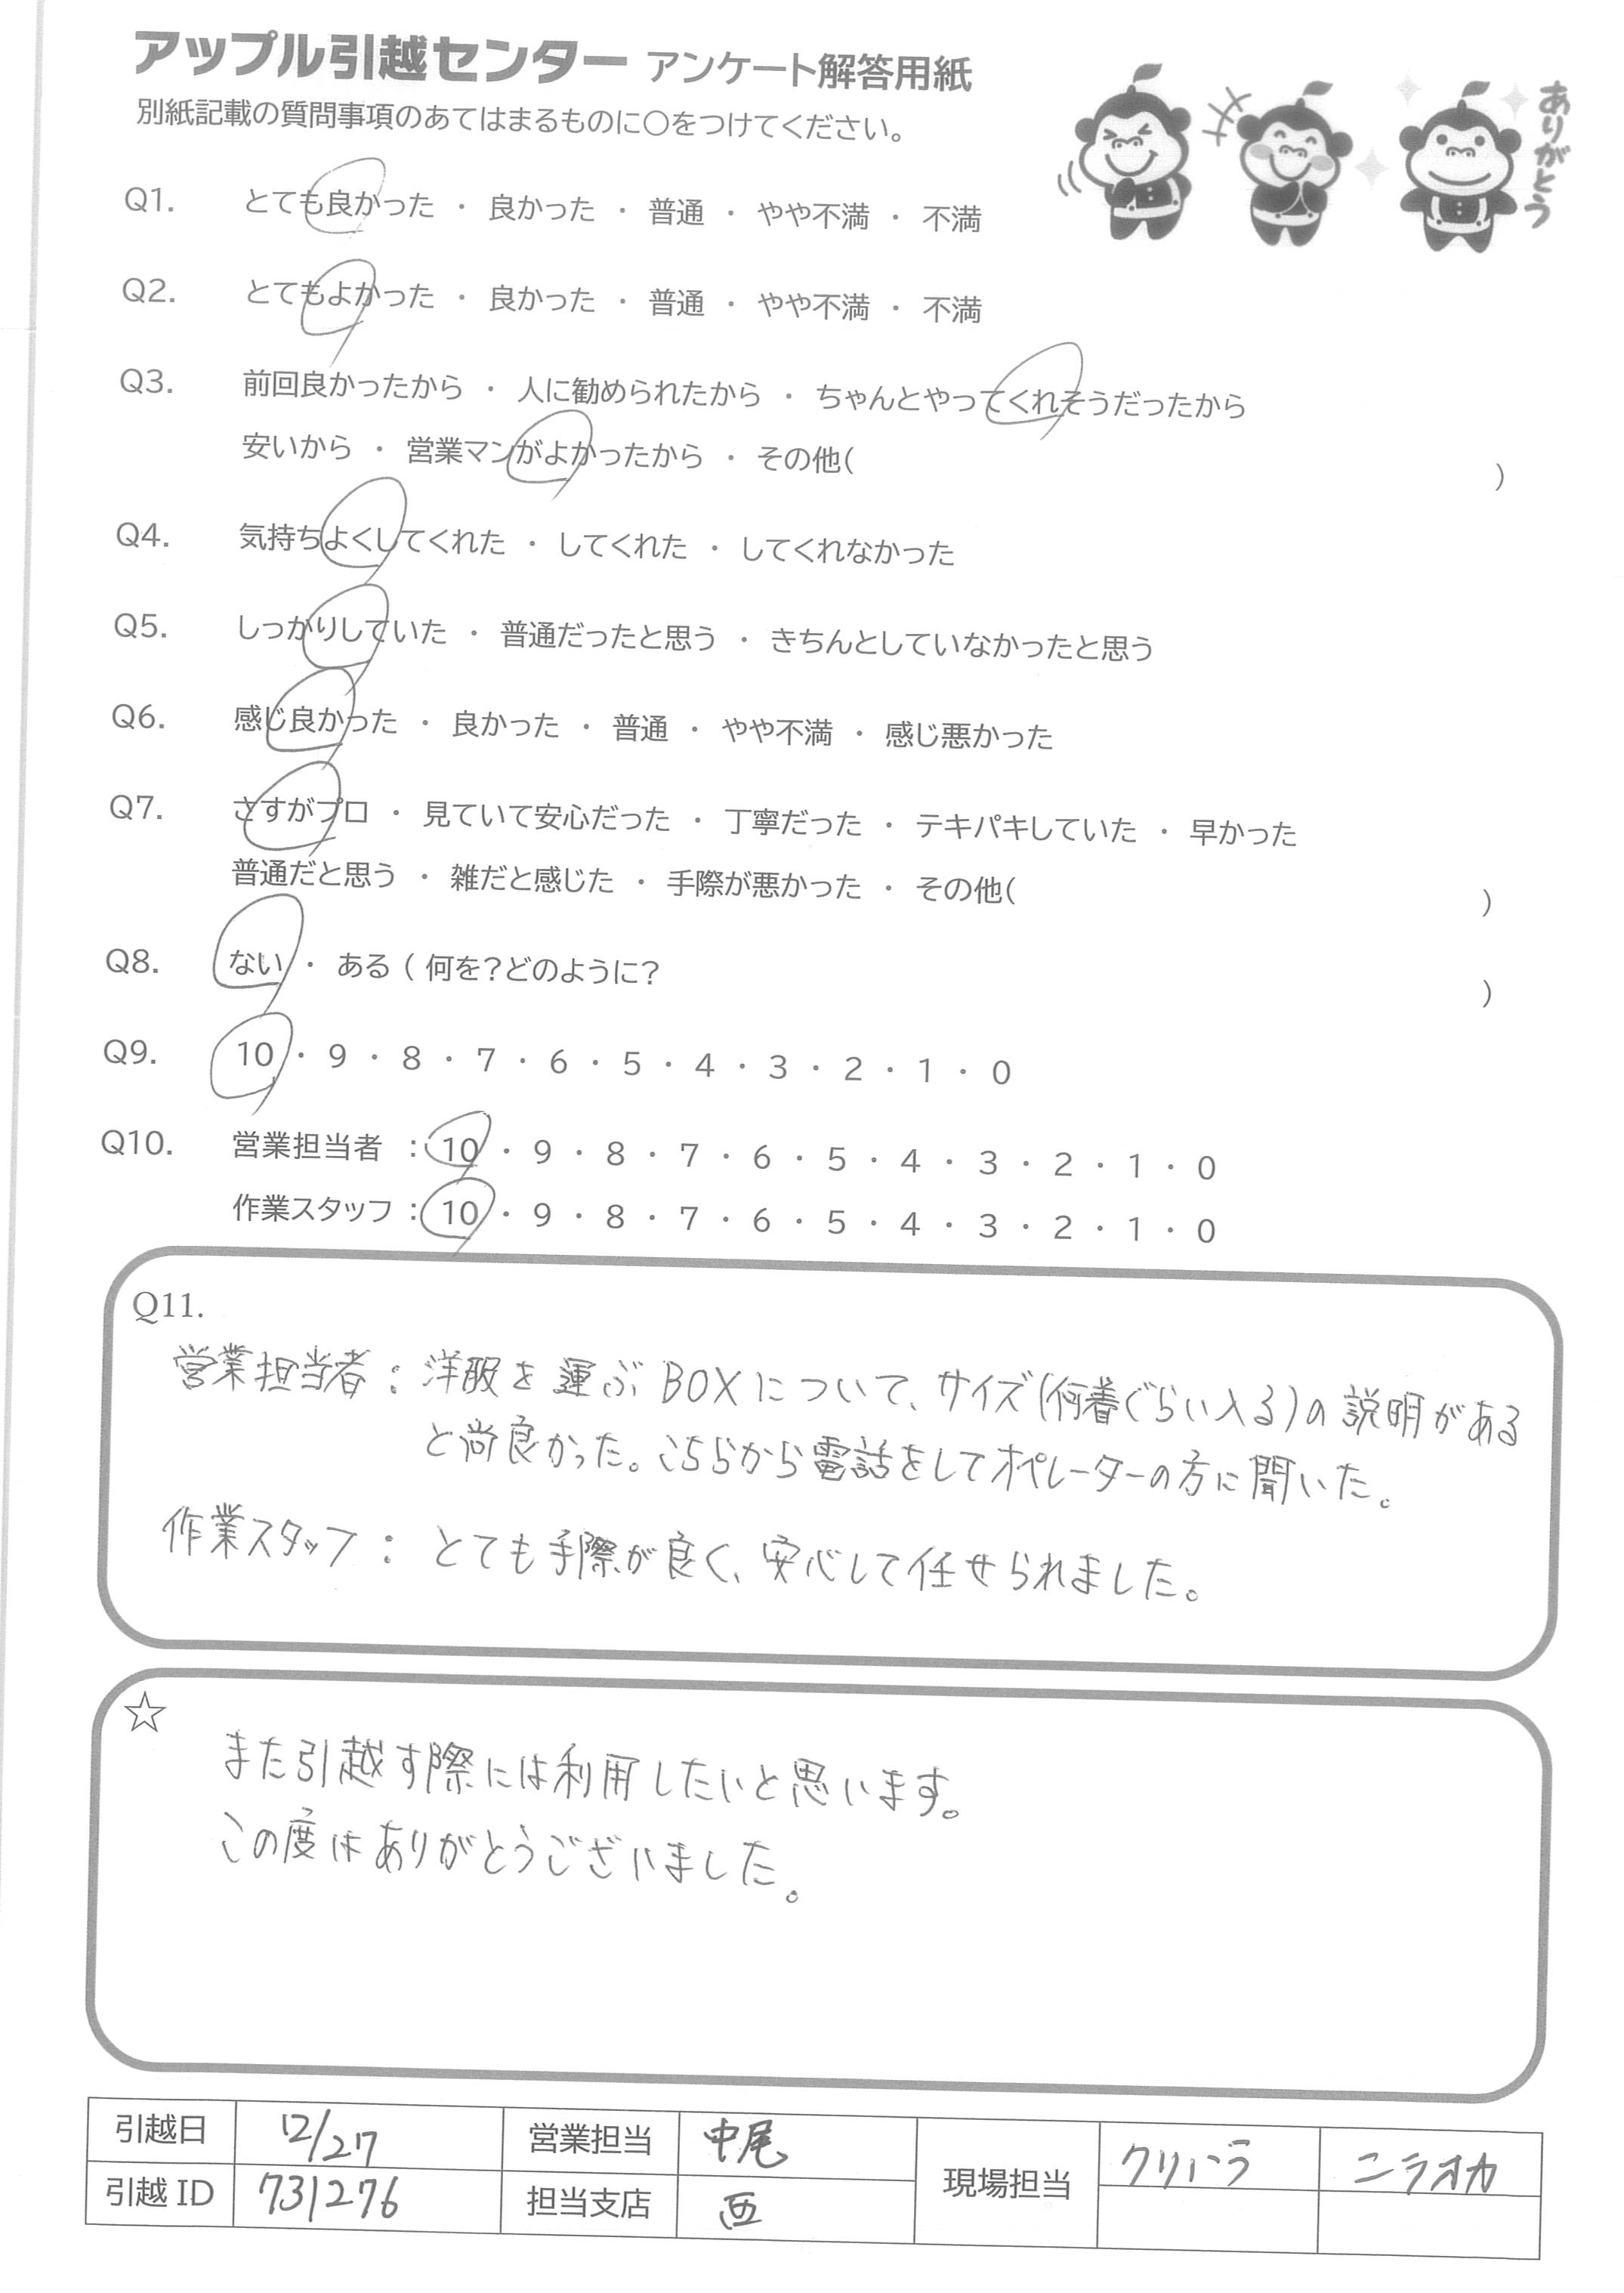 アップル引越センター アンケート解答用紙
別紙記載の質問事項のあてはまるものに○をつけてください。
ありがとう
Q1. とても良かった ・ 良かった ・ 普通 ・ やや不満 ・ 不満
Q2. とてもよかった ・ 良かった ・ 普通 ・ やや不満 ・ 不満
Q3. 前回良かったから ・ 人に勧められたから ・ ちゃんとやってくれそうだったから
安いから ・ 営業マンがよかったから ・ その他( )
Q4. 気持ちよくしてくれた ・ してくれた ・ してくれなかった
Q5. しっかりしていた ・ 普通だったと思う ・ きちんとしていなかったと思う
Q6. 感じ良かった ・ 良かった ・ 普通 ・ やや不満 ・ 感じ悪かった
Q7. さすがプロ ・ 見ていて安心だった ・ 丁寧だった ・ テキパキしていた ・ 早かった
普通だと思う ・ 雑だと感じた ・ 手際が悪かった ・ その他( )
Q8. ない ・ ある ( 何を？どのように？ )
Q9. 10 ・ 9 ・ 8 ・ 7 ・ 6 ・ 5 ・ 4 ・ 3 ・ 2 ・ 1 ・ 0
Q10. 営業担当者 : 10 ・ 9 ・ 8 ・ 7 ・ 6 ・ 5 ・ 4 ・ 3 ・ 2 ・ 1 ・ 0
作業スタッフ : 10 ・ 9 ・ 8 ・ 7 ・ 6 ・ 5 ・ 4 ・ 3 ・ 2 ・ 1 ・ 0
Q11.
営業担当者 : 洋服を運ぶBOXについて、サイズ(何着ぐらい入る)の説明がある
と尚良かった。こちらから電話をしてオペレーターの方に聞いた。
作業スタッフ : とても手際が良く、安心して任せられました。
☆
また引越す際には利用したいと思います。
この度はありがとうございました。
引越日 12/27 営業担当 中尾 現場担当 クリハラ ニラオカ
引越ID 731276 担当支店 西